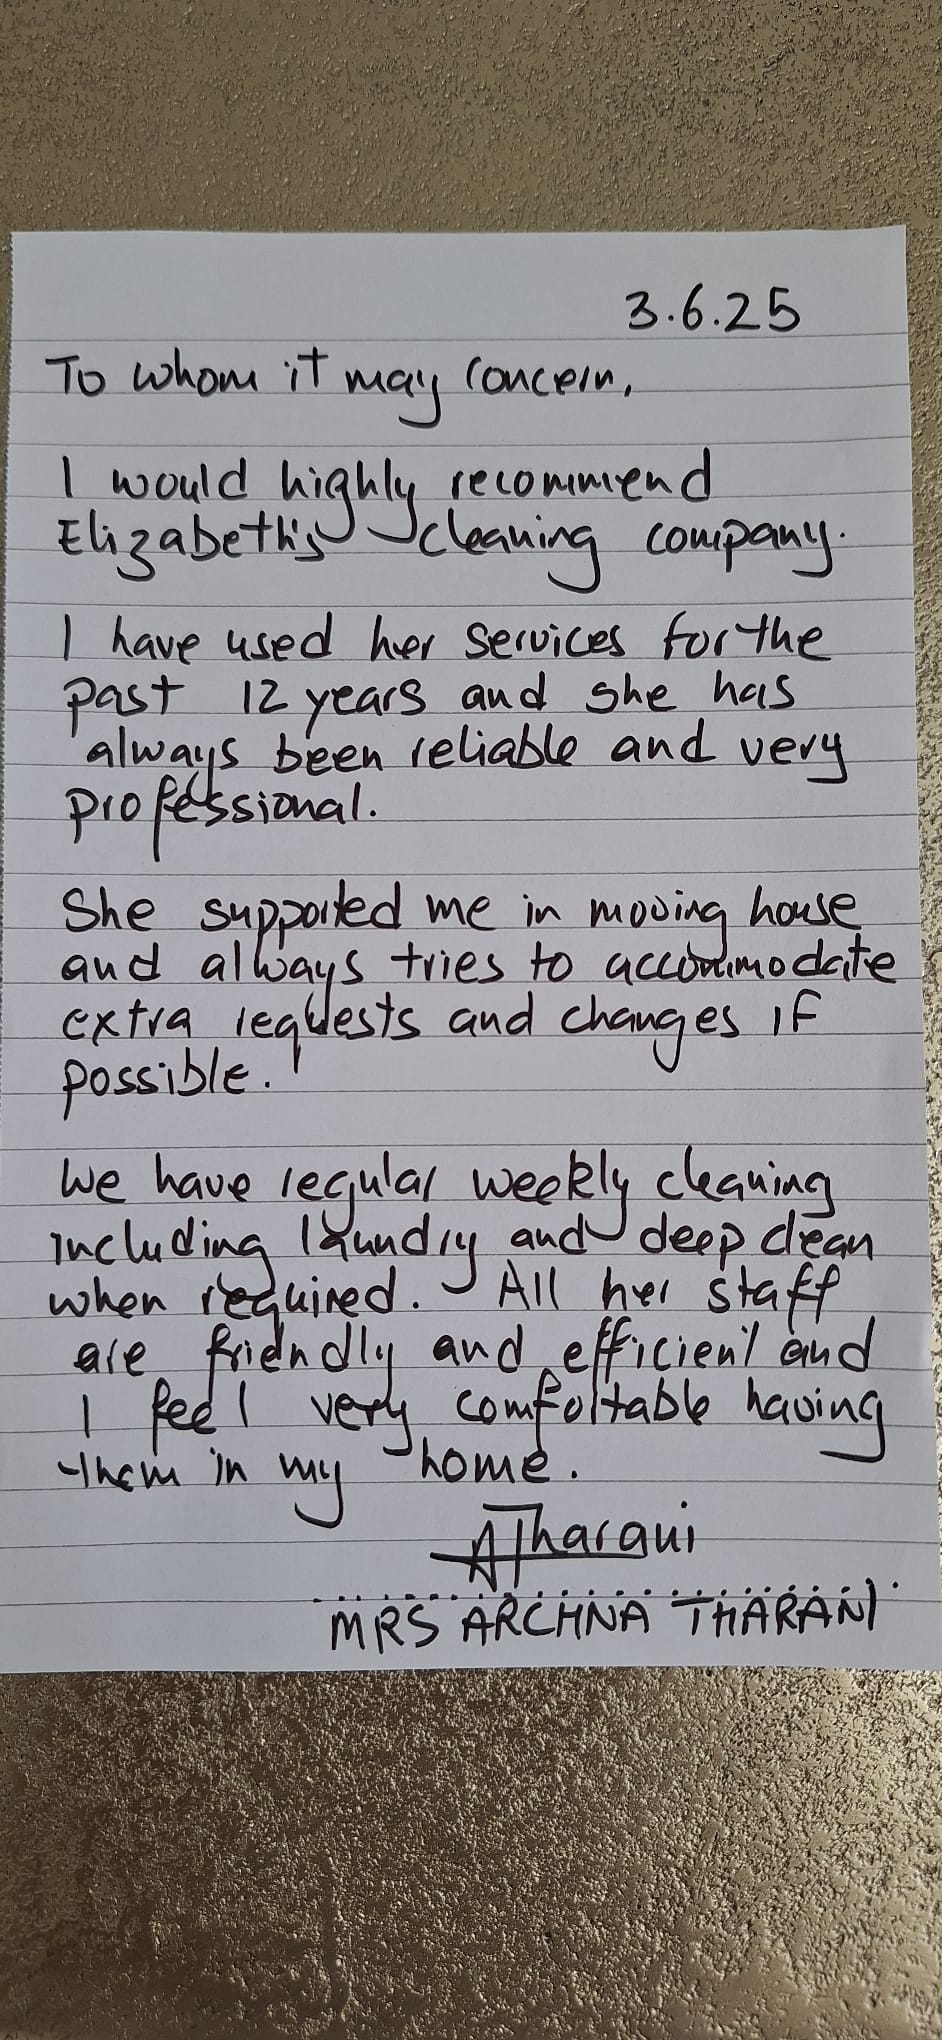 3.6.25
To whom it may concern,
I would highly recommend
Elizabeth's cleaning company.
I have used her services for the
past 12 years and she has
always been reliable and very
professional.
She supported me in moving house
and always tries to accommodate
extra requests and changes if
possible.
We have regular weekly cleaning
including laundry and deep clean
when required. All her staff
are friendly and efficient and
I feel very comfortable having
them in my home.
A Tharani
MRS ARCHNA THARANI